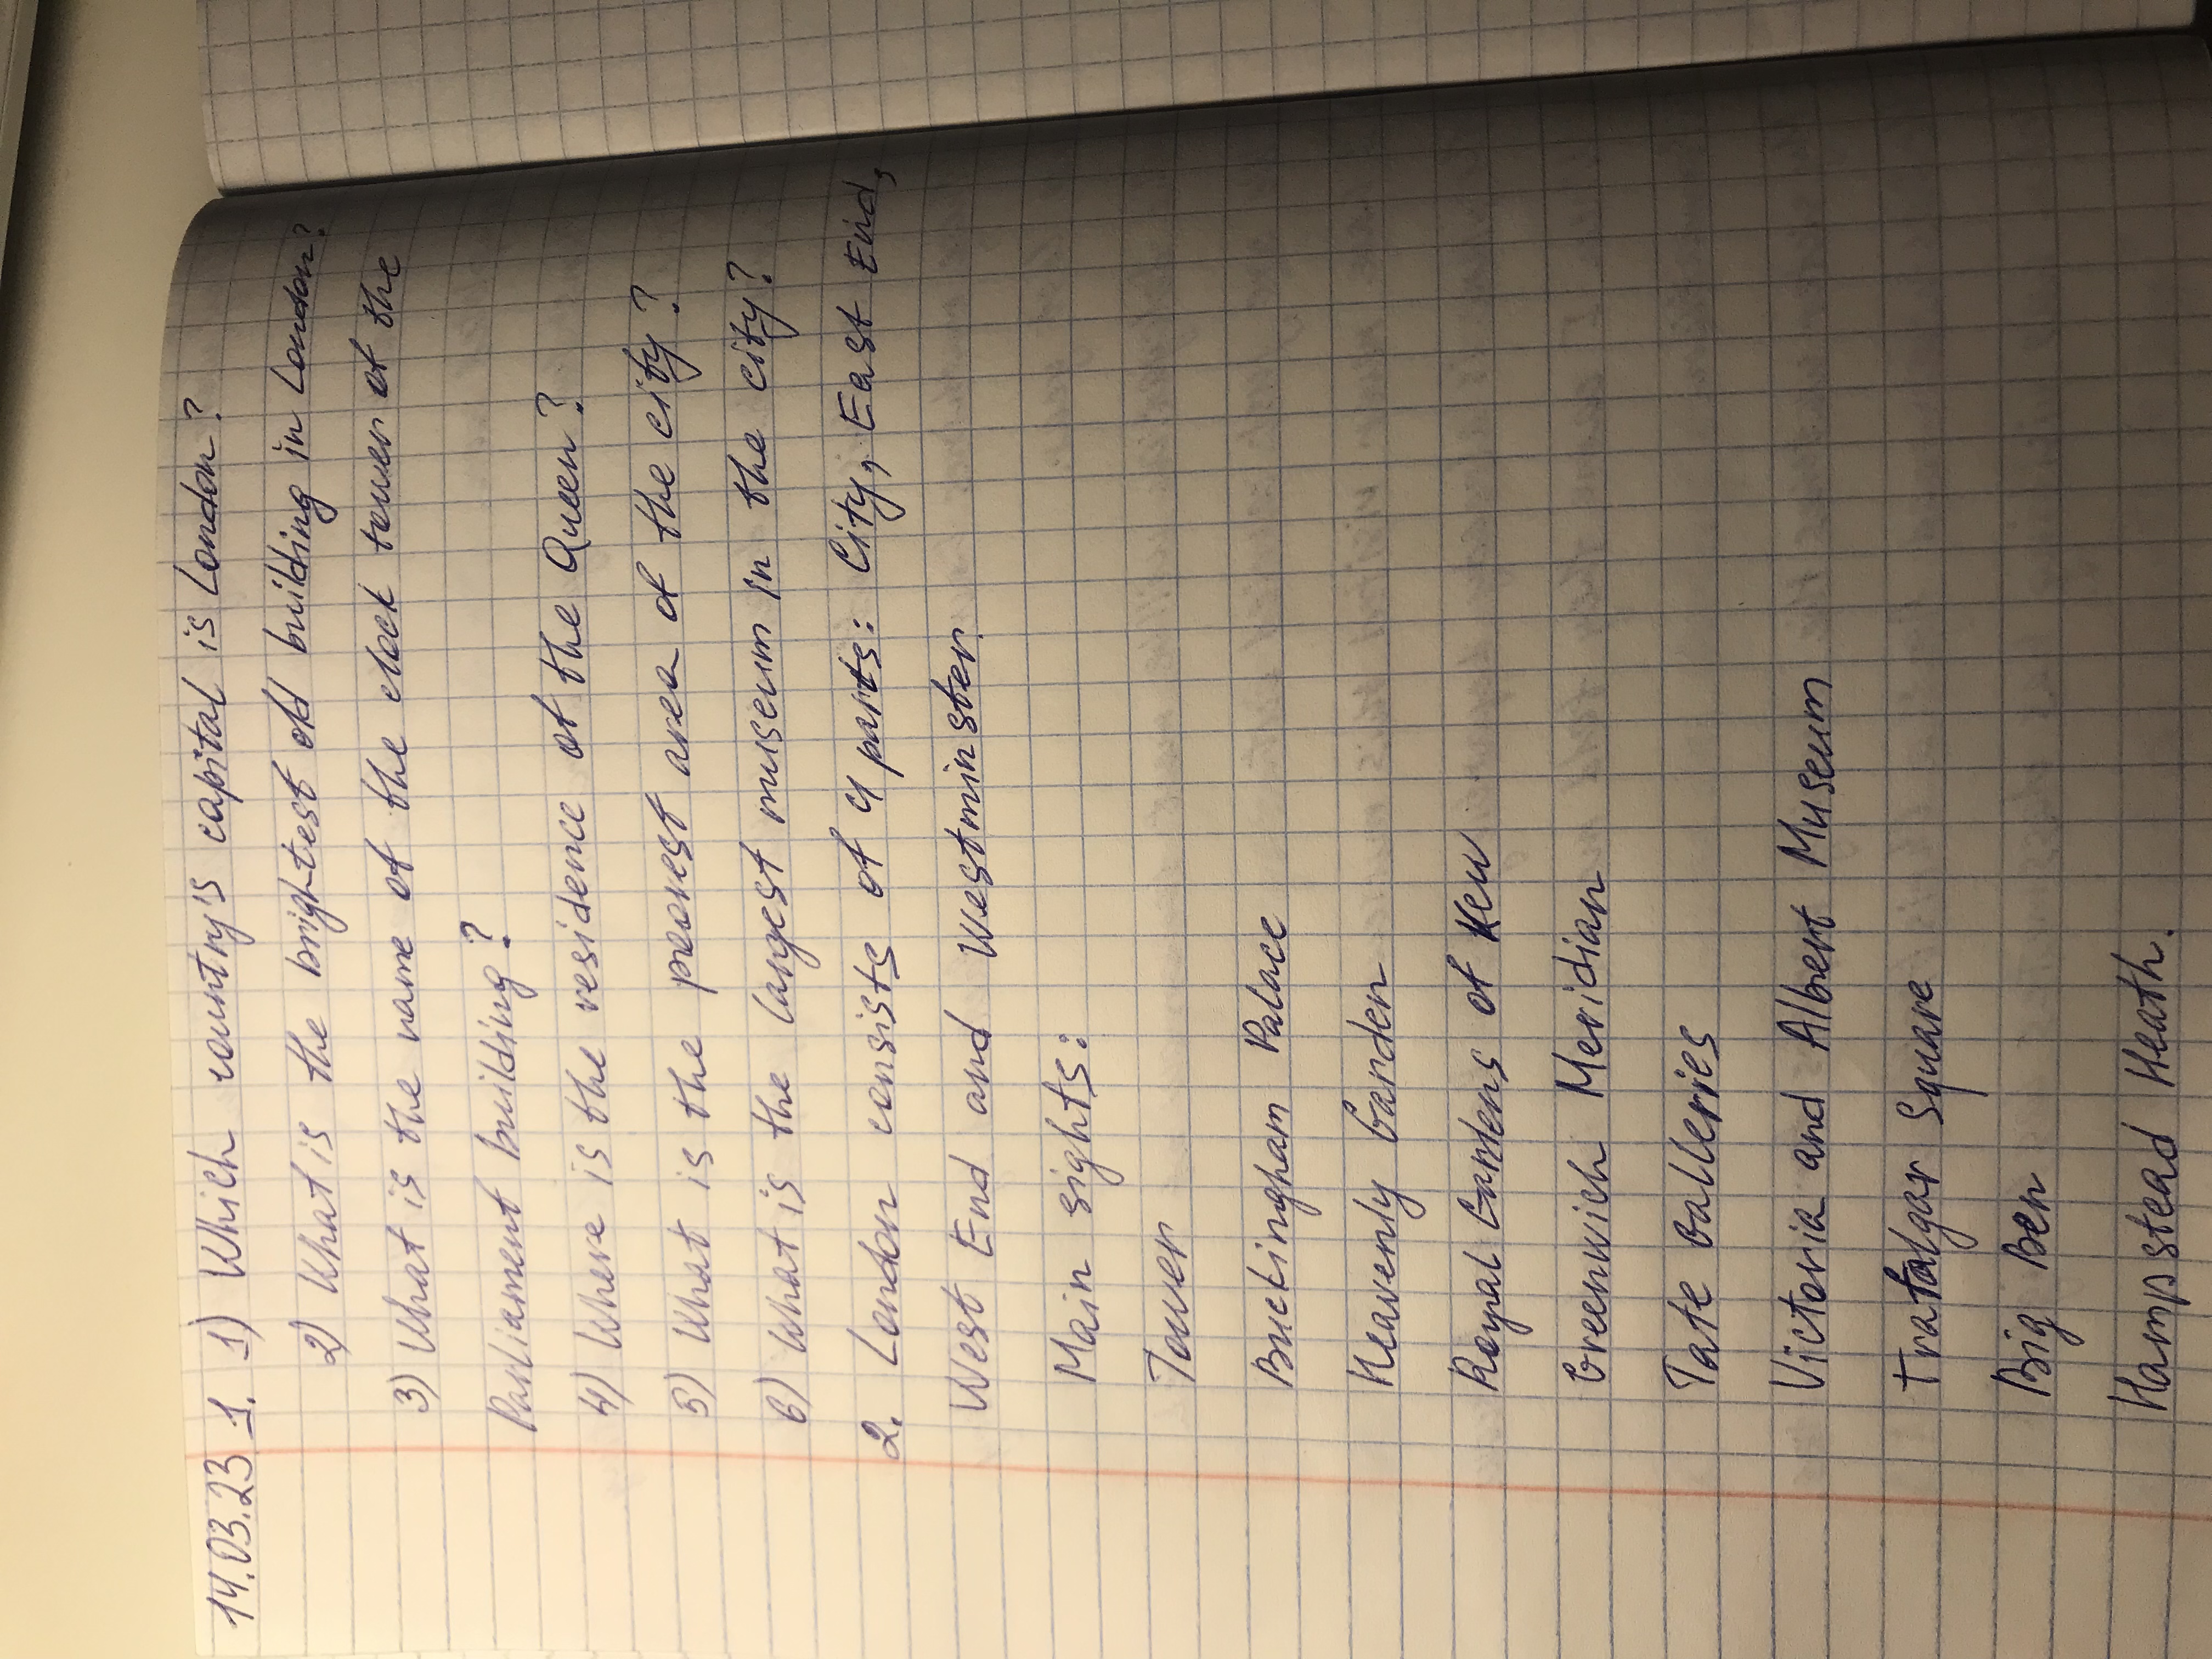 14.03.23 1. 1) Which country's capital is London?
2) What is the brightest old building in London?
3) What is the name of the clock tower of the
Parliament building?
4) Where is the residence of the Queen?
5) What is the poorest area of the city?
6) What is the largest museum in the city?
2. London consists of 4 parts: City, East End,
West End and Westminster.
Main sights:
Tower
Buckingham Palace
Heavenly Garden
Royal Gardens of Kew
Greenwich Meridian
Tate Galleries
Victoria and Albert Museum
Trafalgar Square
Big Ben
Hampstead Heath.